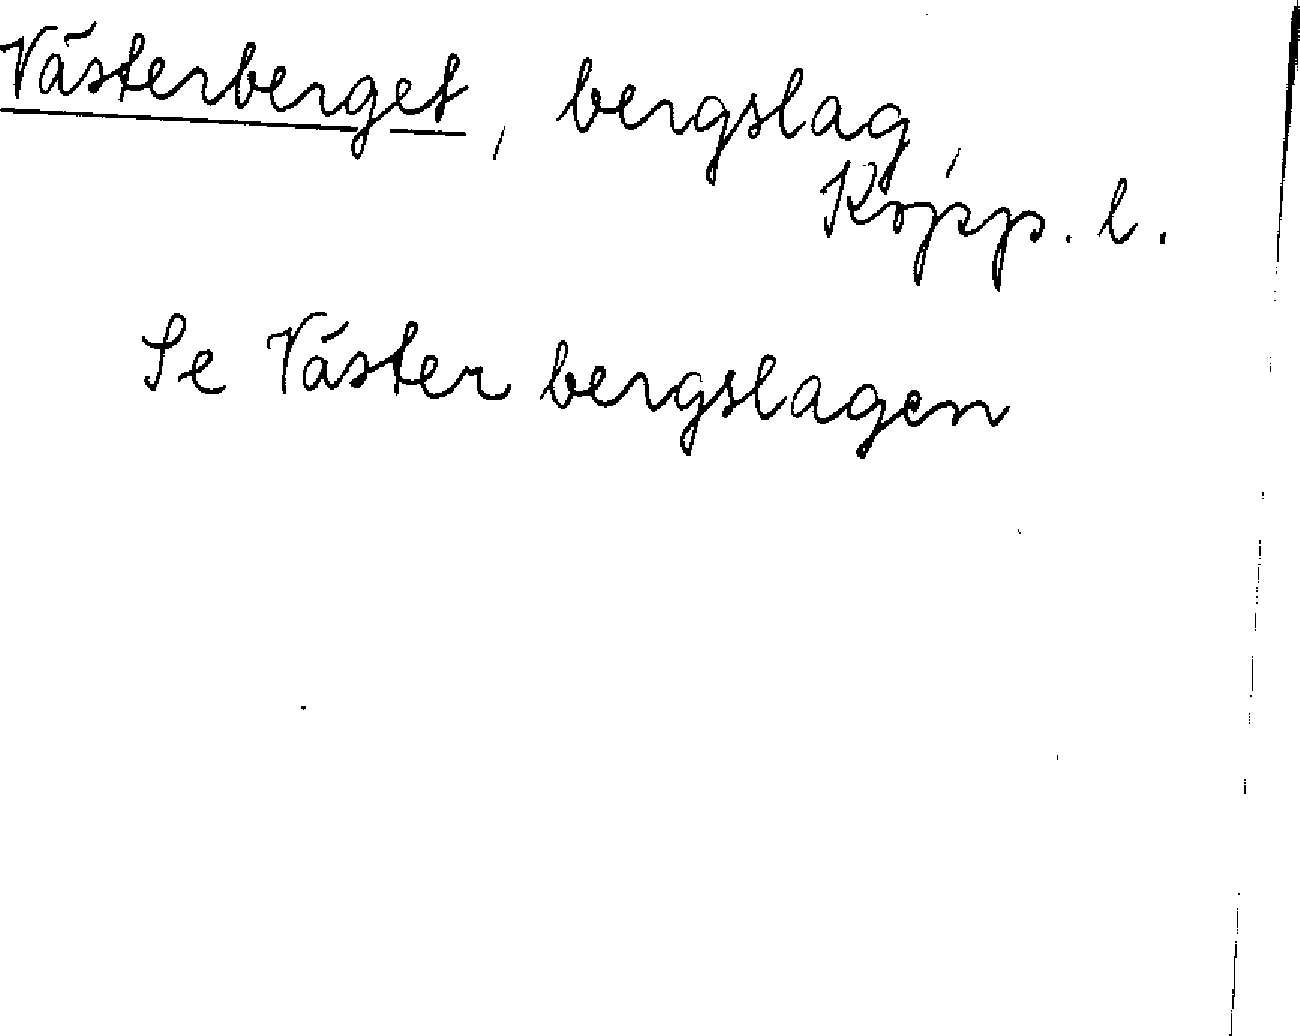 Västerberget, bergslag,
Kopp. l.
Se Västerbergslagen